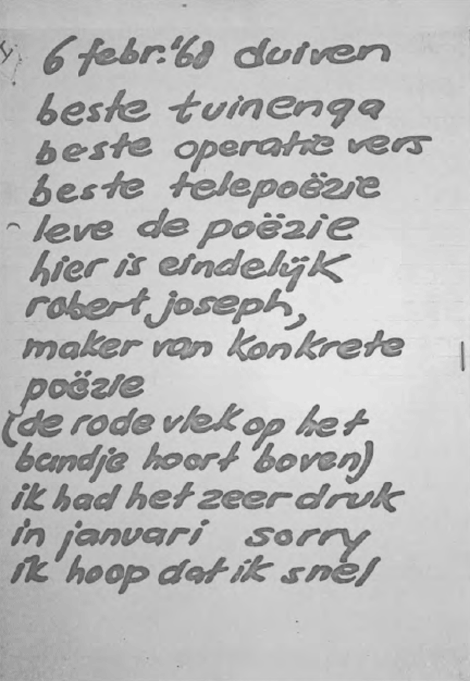 6 febr. '68 duiven
beste tuinenga
beste operatie vers
beste telepoëzie
leve de poëzie
hier is eindelijk
robert joseph,
maker van konkrete
poëzie
(de rode vlek op het
bandje hoort boven)
ik had het zeer druk
in januari sorry
ik hoop dat ik snel